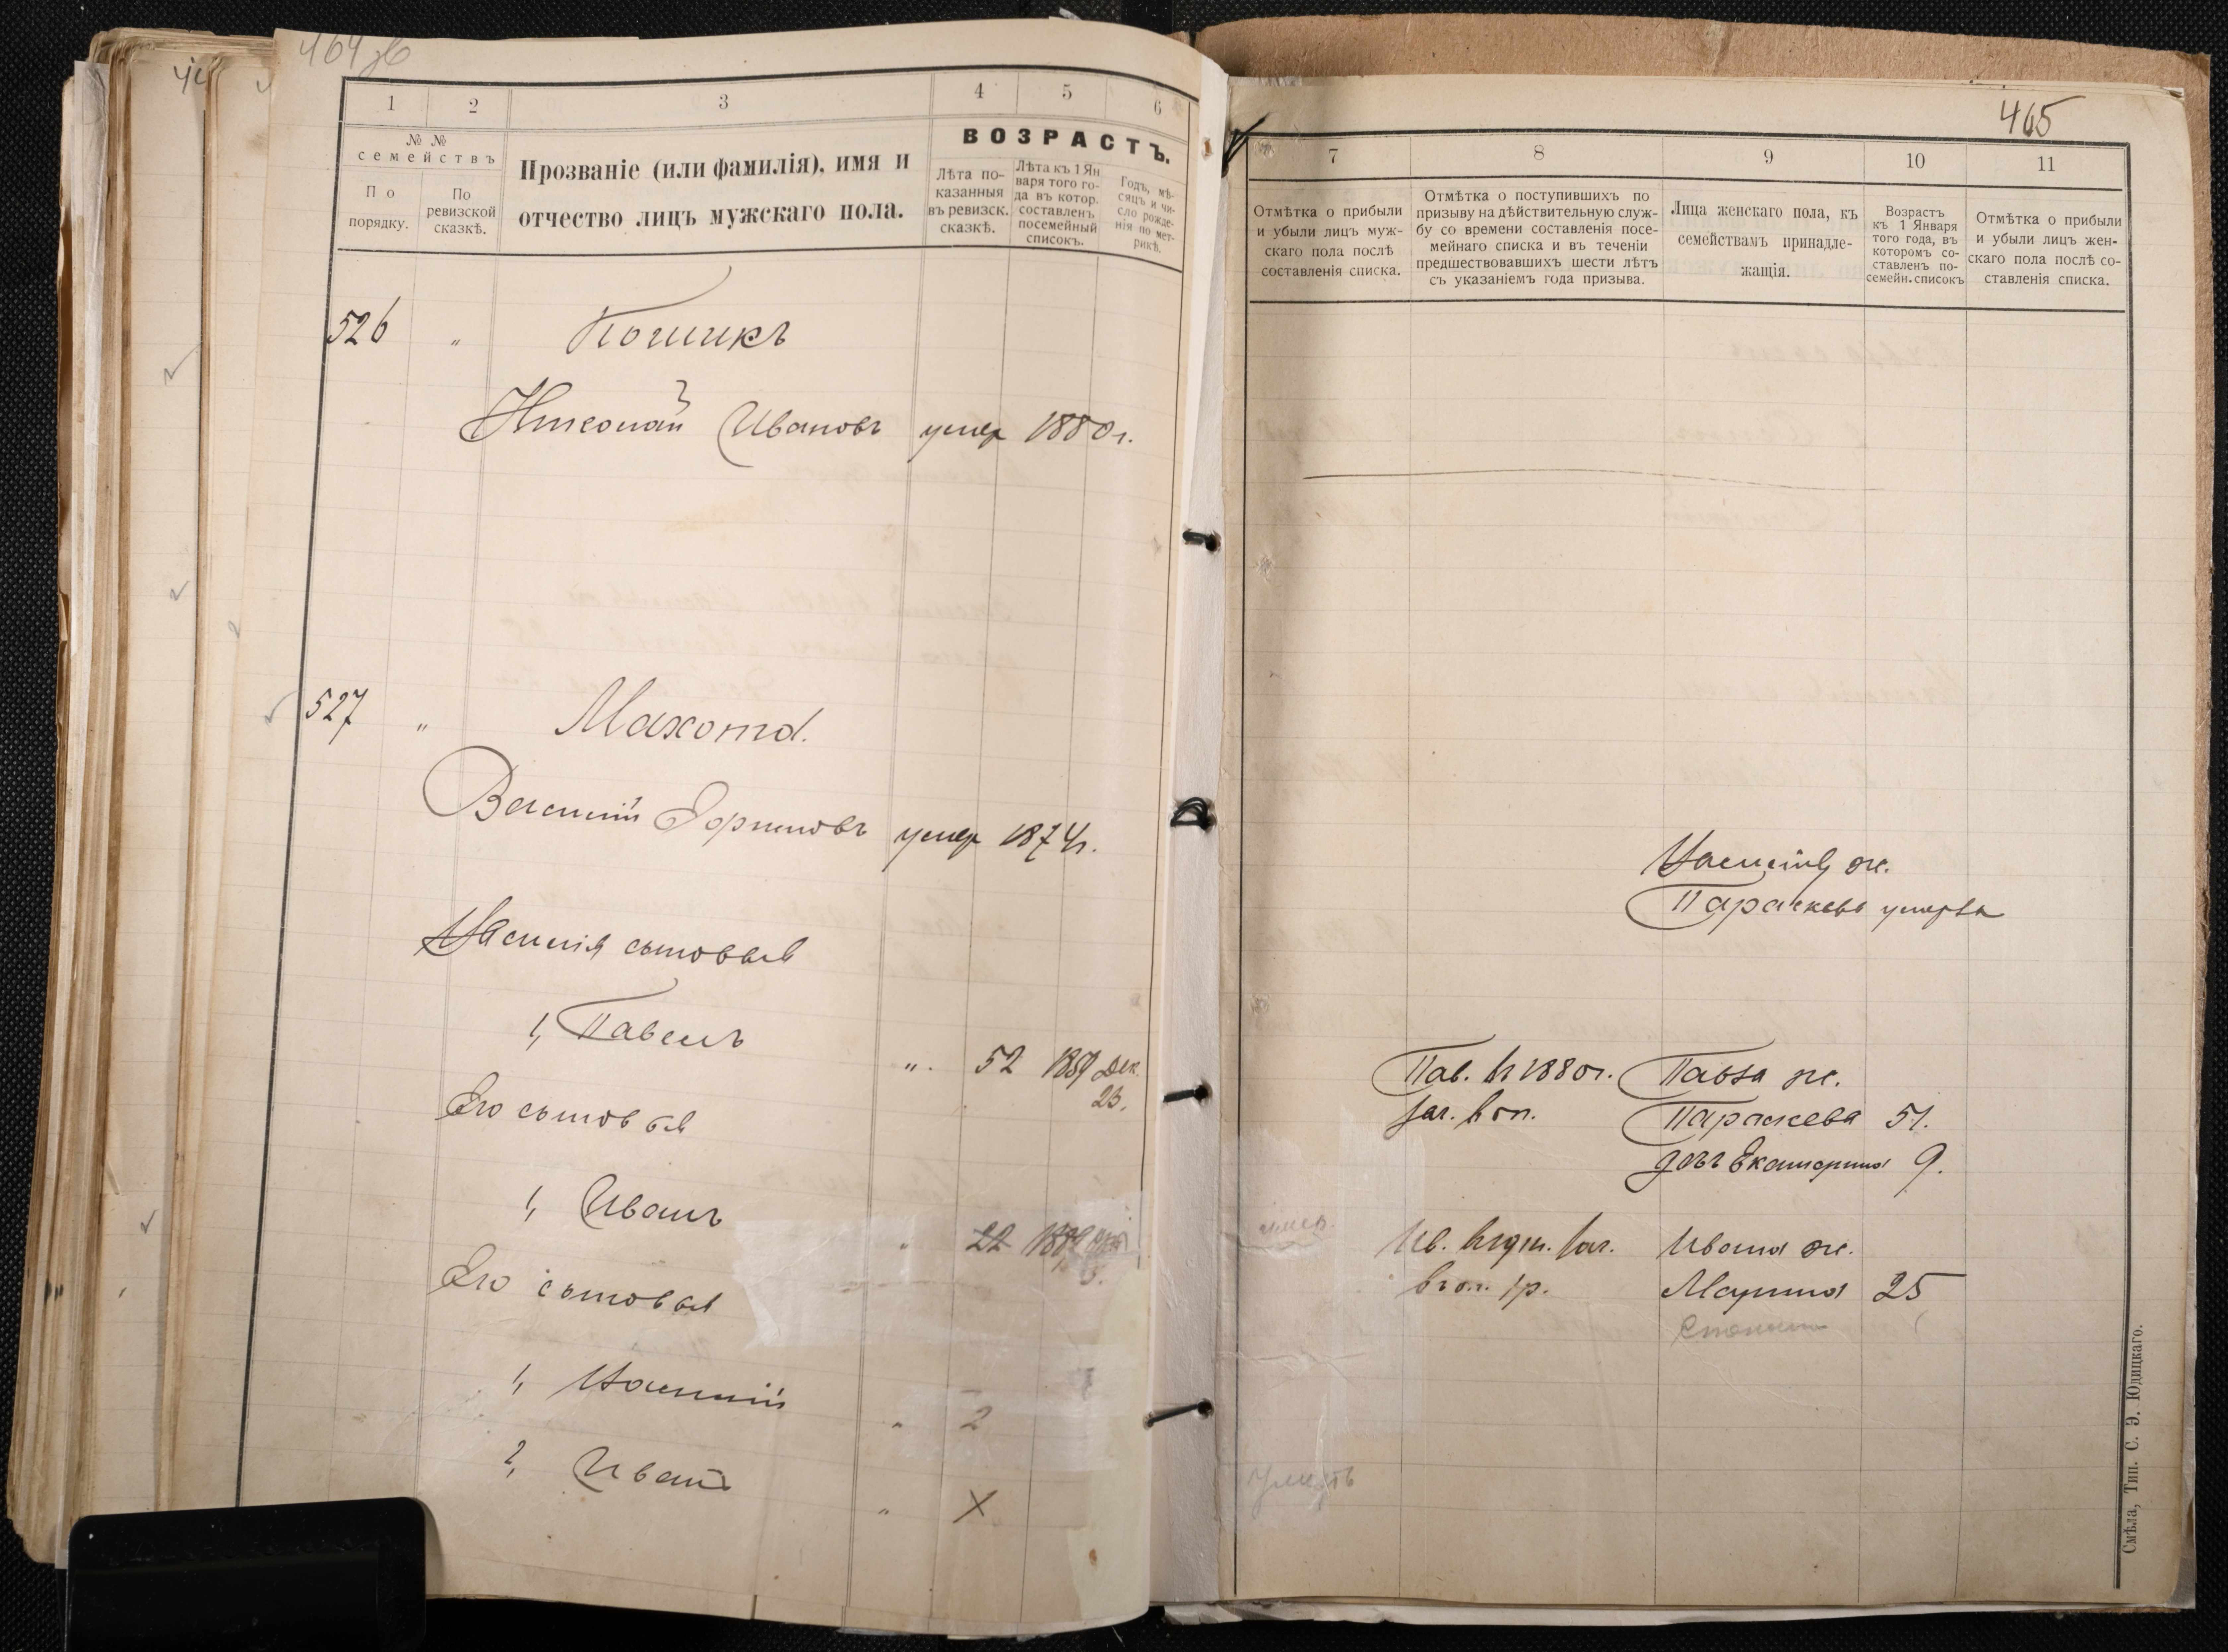 464 зв
1 2 3 4 5 6
№ №
семействъ
По порядку.
По ревизской сказкѣ.
Прозваніе (или фамилія), имя и
отчество лицъ мужскаго пола.
ВОЗРАСТЪ.
Лѣта по-
казанныя
въ ревизск.
сказкѣ.
Лѣта къ 1 Ян
варя того го-
да въ котор.
составленъ
посемейный
списокъ.
Годъ, мѣ-
сяцъ и чи-
сло рожде-
нія по мет-
рикѣ.
526 "
Николай Ивановъ умер 1880 г.
527 " Махота.
Василій умер 1874 г.
Василія сыновья
1, Павелъ
". 52 1859 Дек.
23.
Его сыновья
1, Иванъ
" 22
Его сыновья
1, Василій
" 2
2, Иванъ
" X
465
7 8 9 10 11
Отмѣтка о прибыли
и убыли лицъ муж-
скаго пола послѣ
составленія списка.
Отмѣтка о поступившихъ по
призыву на дѣйствительную служ-
бу со времени составленія посе-
мейнаго списка и въ теченіи
предшествовавшихъ шести лѣтъ
съ указаніемъ года призыва.
Лица женскаго пола, къ
семействамъ принадле-
жащія.
Возрастъ
къ 1 Января
того года, въ
которомъ со-
ставленъ по-
семейн. списокъ
Отмѣтка о прибыли
и убыли лицъ жен-
скаго пола послѣ со-
ставленія списка.
Василія ж.
Параскева умерла
Пав. въ 1880 г. Павла ж.
Параскева 51.
дочь Екатерина 9.
Ив. Ивана ж.
Марина 25
умеръ
Смѣла, Тип. С. Э. Юдицкаго.